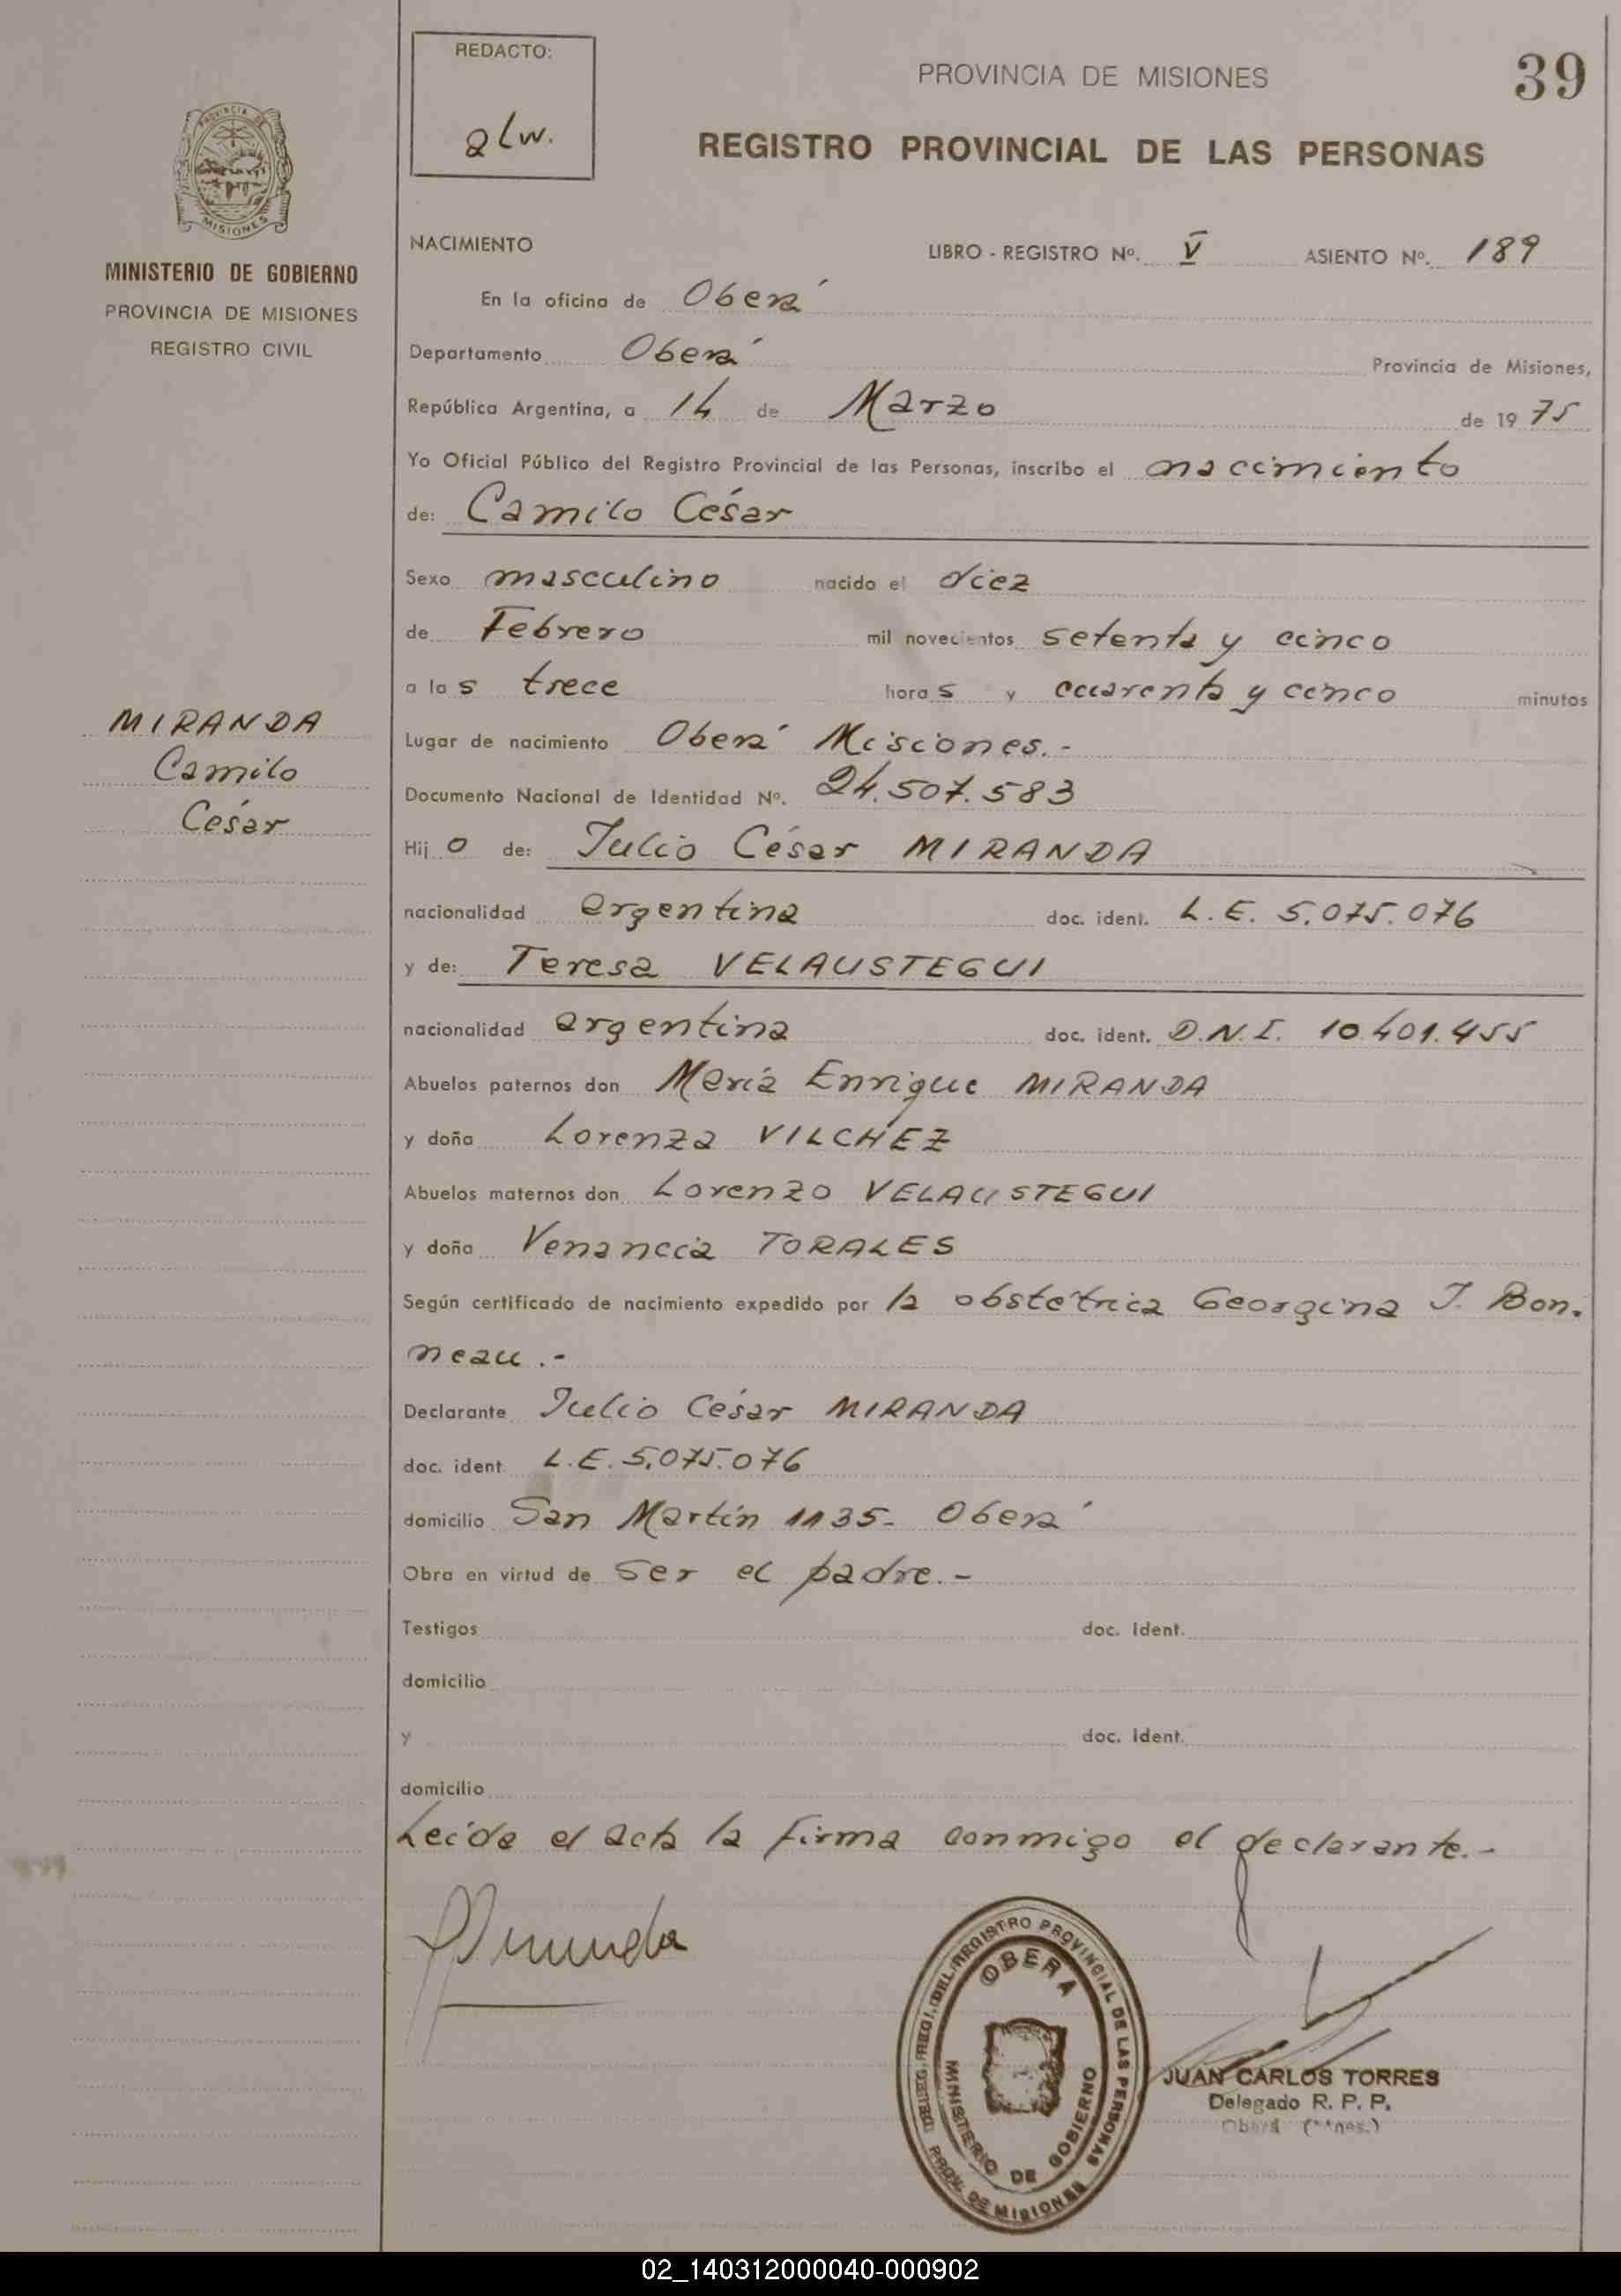 REDACTO:
PROVINCIA DE MISIONES
39
REGISTRO PROVINCIAL DE LAS PERSONAS
PROVINCIA DE
MISIONES
MINISTERIO DE GOBIERNO
PROVINCIA DE MISIONES
REGISTRO CIVIL
MIRANDA
Camilo
César
NACIMIENTO LIBRO - REGISTRO Nº. V ASIENTO Nº. 189
En la oficina de Oberá
Departamento Oberá Provincia de Misiones,
República Argentina, a 14 de Marzo de 1975
Yo Oficial Público del Registro Provincial de las Personas, inscribo el nacimiento
de: Camilo César
Sexo masculino nacido el diez
de Febrero mil novecientos setenta y cinco
a las trece horas y cuarenta y cinco minutos
Lugar de nacimiento Oberá Misiones.-
Documento Nacional de Identidad Nº. 24.507.583
Hijo de: Julio César MIRANDA
nacionalidad argentina doc. ident. L.E. 5.075.076
y de: Teresa VELAUSTEGUI
nacionalidad argentina doc. ident. D.N.I. 10.401.455
Abuelos paternos don María Enrique MIRANDA
y doña Lorenza VILCHEZ
Abuelos maternos don Lorenzo VELAUSTEGUI
y doña Venancia TORALES
Según certificado de nacimiento expedido por la obstétrica Georgina J. Bon.
neau.-
Declarante Julio César MIRANDA
doc. ident. L.E. 5.075.076
domicilio San Martín 1135- Oberá
Obra en virtud de ser el padre.-
Testigos doc. ident.
domicilio
y doc. ident.
domicilio
Leída el acta la firma conmigo el declarante.-
REGISTRO PROVINCIAL DE LAS PERSONAS
OBERA
MINISTERIO DE GOBIERNO
PROV. DE MISIONES
JUAN CARLOS TORRES
Delegado R. P. P.
Oberá
02_140312000040-000902